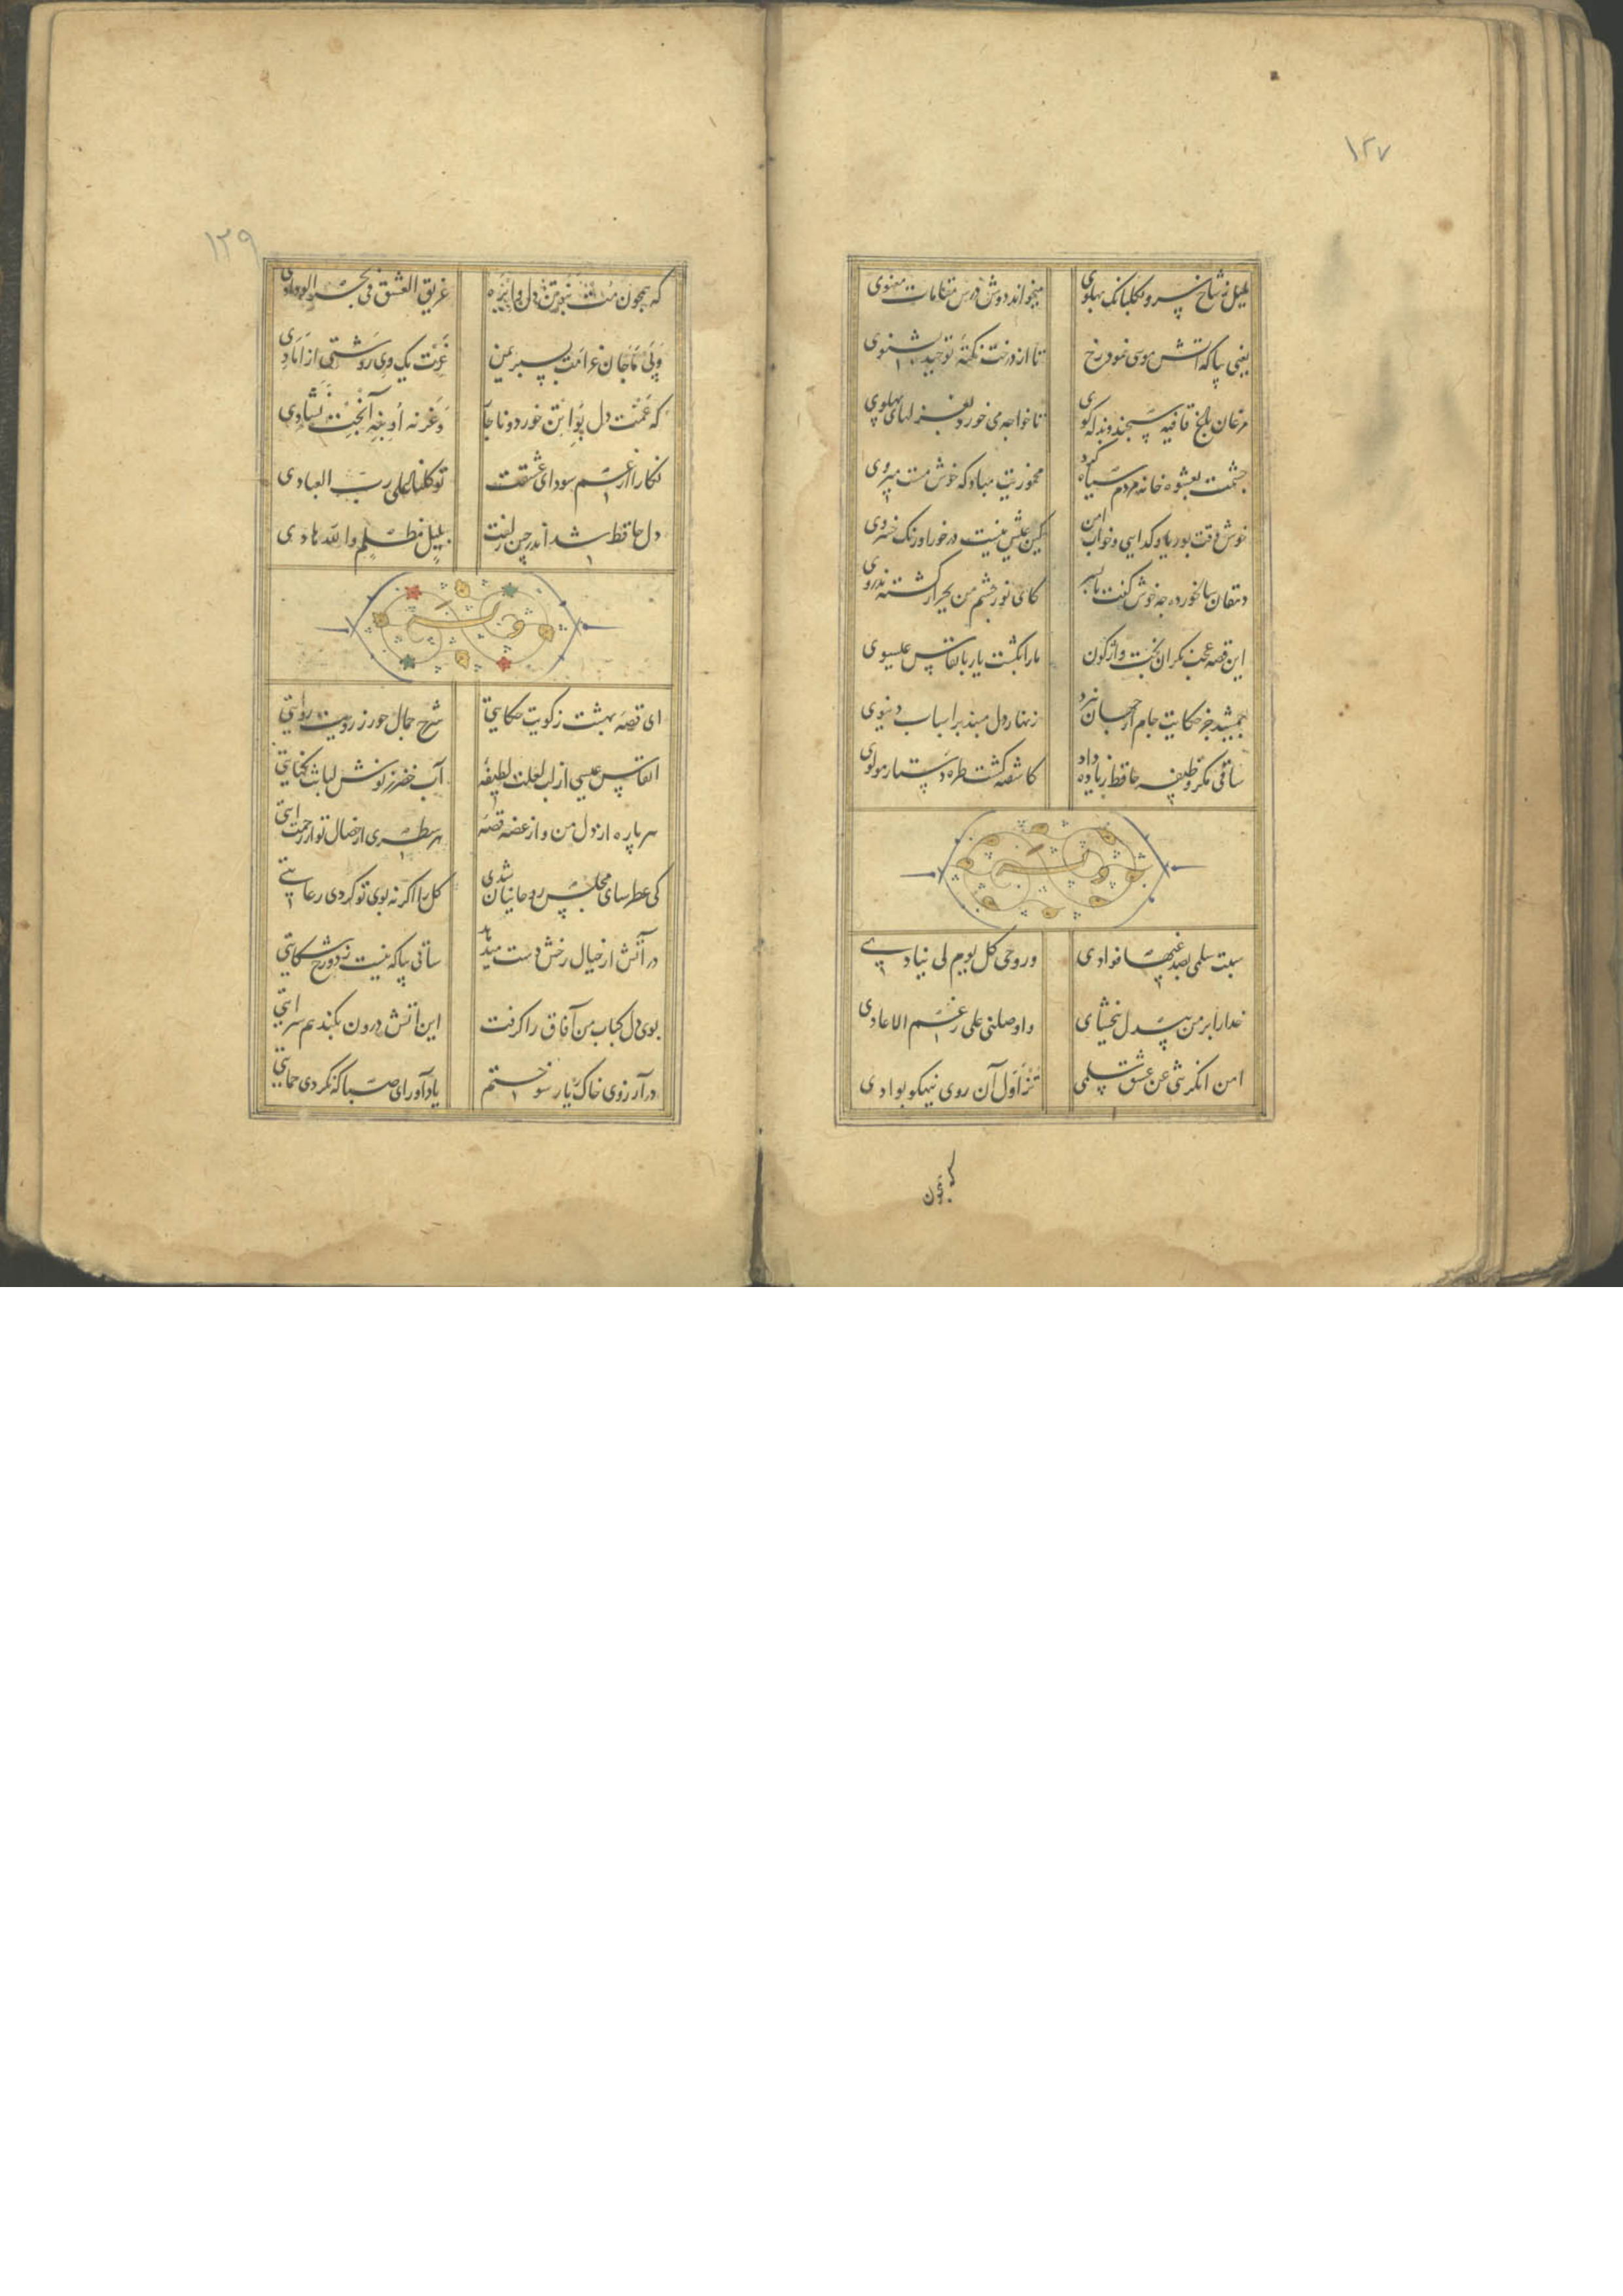 ۱۲۷
بلبل ز شاخ سرو بکلبانک پهلوی میخواند دوش درس مقامات معنوی
یعنی بیا که آتش موسی نمود رخ تا از درخت نکته توحید بشنوی
مرغان باغ قافیه سنجند و بذله کوی تا خواجه می خورد بغزلهای پهلوی
چشمت بعشوه خانه مردم سیاه کرد مخموریت مباد که خوش مست میروی
خوش وقت بوریا و کدایی و خواب امن کین عیش نیست درخور اورنک خسروی
دهقان سالخورده چه خوش کفت با پسر کای نور چشم من بجز از کشته ندروی
این قصه عجب بین از بخت واژکون مارا بکشت یار بانفاس عیسوی
جمشید جز حکایت جام از جهان نبرد زنهار دل مبند بر اسباب دنیوی
ساقی مکر وظیفه حافظ زیاده داد کاشفته کشت طره دستار مولوی
وله
سبت سلمی بصدغیها فوادی وروحی کل یوم لی ینادی
خدارا بر من بیدل ببخشای وواصلنی علی رغم الاعادی
امن انکرتنی عن عشق سلمی تزاول آن روی نیهکو بوادی
که همچون
۱۲۹
که همچون مت ببوتن دل وای ره غریق العشق فی بحر الودادی
وپی ماچان غرامت بسپریمن غرت یک وی روشتی از امادی
که غمت دل بوا بتن خورد و ناچار وغرنه او بنه آنچت نشادی
نکارا در غم سودای عشقت توکلنا علی رب العبادی
دل حافظ شد اندر چین زلفت بلیل مظلم والله هادی
وله
ای قصه بهشت ز کویت حکایتی شرح جمال حور ز رویت روایتی
انفاس عیسی از لب لعلت لطیفه آب خضر ز نوش لبانت کنایتی
هر پاره از دل من و از غصه قصه هر سطری از خصال تو از رحمت ایتی
کی عطر سای مجلس روحانیان شدی کل را اکر نه بوی تو کردی رعایتی
در آتش ار خیال رخش دست میدهد ساقی بیا که نیست ز دوزخ شکایتی
بوی دل کباب من آفاق را کرفت این آتش درون بکند هم سرایتی
در آرزوی خاک یار سوختم یاد آور ای صبا که نکردی حمایتی